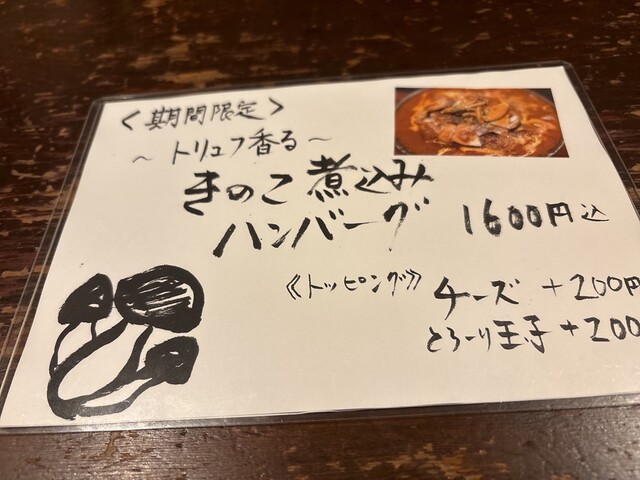 <期間限定>
~トリュフ香る~
きのこ煮込み
ハンバーグ 1600円込
《トッピング》 チーズ +200円
とろーり玉子 +200